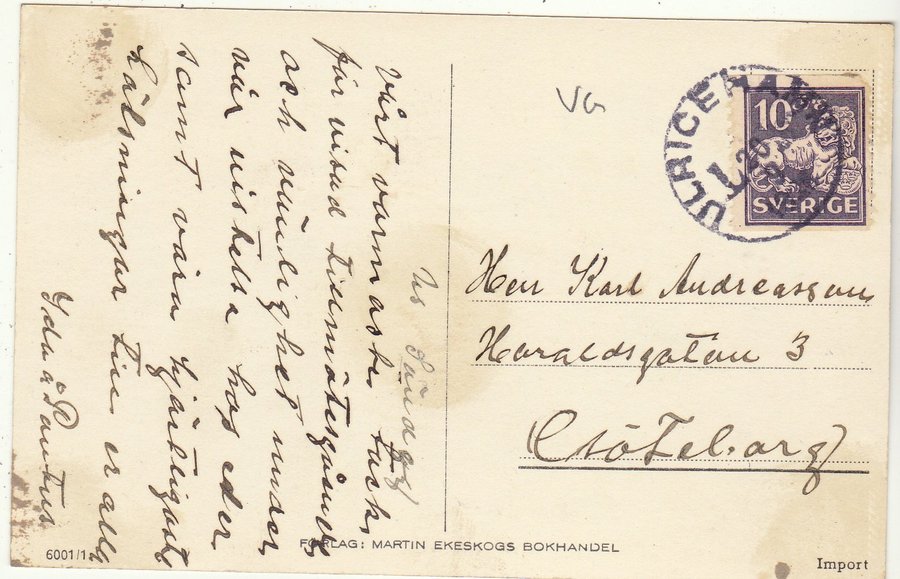 Söndag
Vårt varmaste tack
för visad tillmötesgående
och vänlighet under
vår vistelse hos eder
samt våra hjärtligaste
hälsningar till er alla
Ida o Pontus
VG
ULRICEHAMN
10
SVERIGE
Herr Karl Andreasson
Haraldsgatan 3
Göteborg
FÖRLAG: MARTIN EKESKOGS BOKHANDEL
6001/1
Import